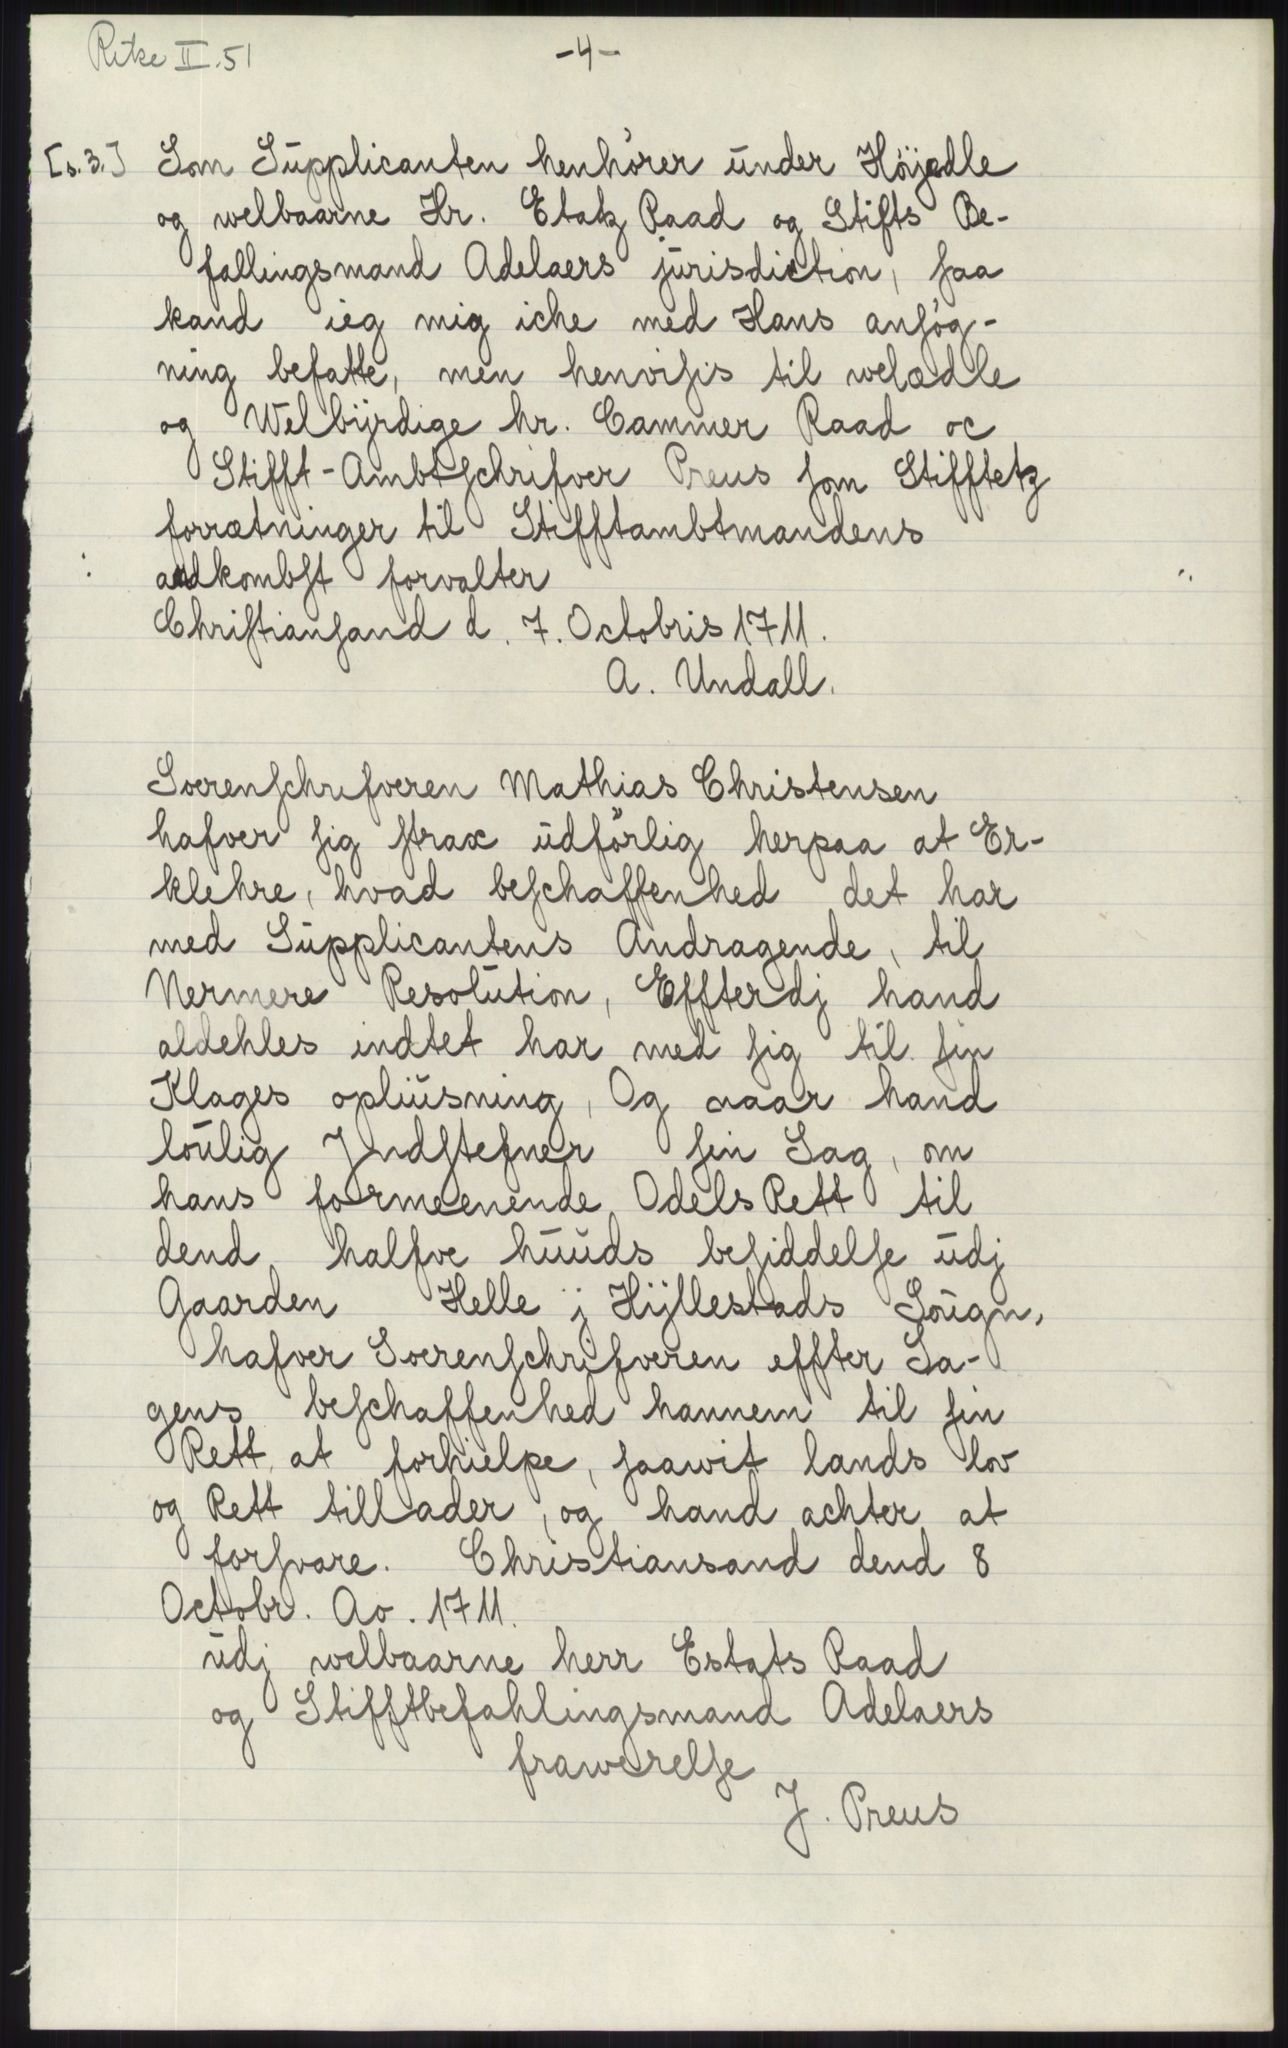 Rike II.51
-4-
[s.3.] Som Supplicanten henhører under Höÿædle
og welbaarne Hr. Etatz Raad og Stifts Be-
fallingsmand Adelaers jurisdiction, saa
kand ieg mig iche med Hans ansøg-
ning befatte, men henvisis til welædle
og Welbÿrdige hr. Cammer Raad oc
Stifft-Ambtschrifver Preus som Stifftetz
forrætninger til Stifftambtmandens
andkombst forvalter
Christiansand d. 7. Octobris 1711.
A. Undall.
Sorenschrifveren Mathias Christensen
hafver sig strax udförlig herpaa at Er-
klehre, hvad beschaffenhed det har
med Supplicantens Andragende, til
Nermere Resolution, Effterdj hand
aldehles indtet har med sig til sin
Klages opliusning, Og naar hand
loulig Indstefner sin Sag, om
hans formeenende Odels Rett til
dend halfve huuds besiddelse udj
Gaarden Helle j Hÿllestads Sougn,
hafver Sorenschrifveren effter Sa-
gens beschaffenhed hannem til sin
Rett at forhielpe, saawit lands lov
og Rett tillader, og hand achter at
forsvare. Christiansand dend 8
Octobr. Ao. 1711.
udj welbaarne herr Estats Raad
og Stifftbefahlingsmand Adelaers
frawerelse
J. Preus